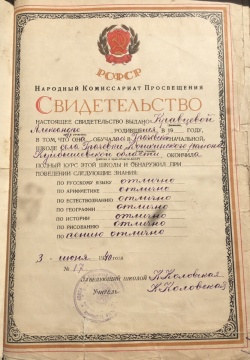 РСФСР
НАРОДНЫЙ КОМИССАРИАТ ПРОСВЕЩЕНИЯ
СВИДЕТЕЛЬСТВО
НАСТОЯЩЕЕ СВИДЕТЕЛЬСТВО ВЫДАНО Кравцовой
РОДИВШЕ В 19 ГОДУ,
В ТОМ, ЧТО ОБУЧАЛ В НАЧАЛЬНОЙ
ШКОЛЕ села района
Куйбышевской области ОКОНЧИЛ
ПОЛНЫЙ КУРС ЭТОЙ ШКОЛЫ И ОБНАРУЖИЛ ПРИ
ПОВЕДЕНИИ СЛЕДУЮЩИЕ ЗНАНИЯ:
ПО РУССКОМУ ЯЗЫКУ отлично
ПО АРИФМЕТИКЕ отлично
ПО ЕСТЕСТВОЗНАНИЮ отлично
ПО ГЕОГРАФИИ отлично
ПО ИСТОРИИ отлично
ПО РИСОВАНИЮ отлично
ПО пению отлично
3 июня 40 года
№ 17
Заведующий школой К. Коловская
Учитель К. Коловская